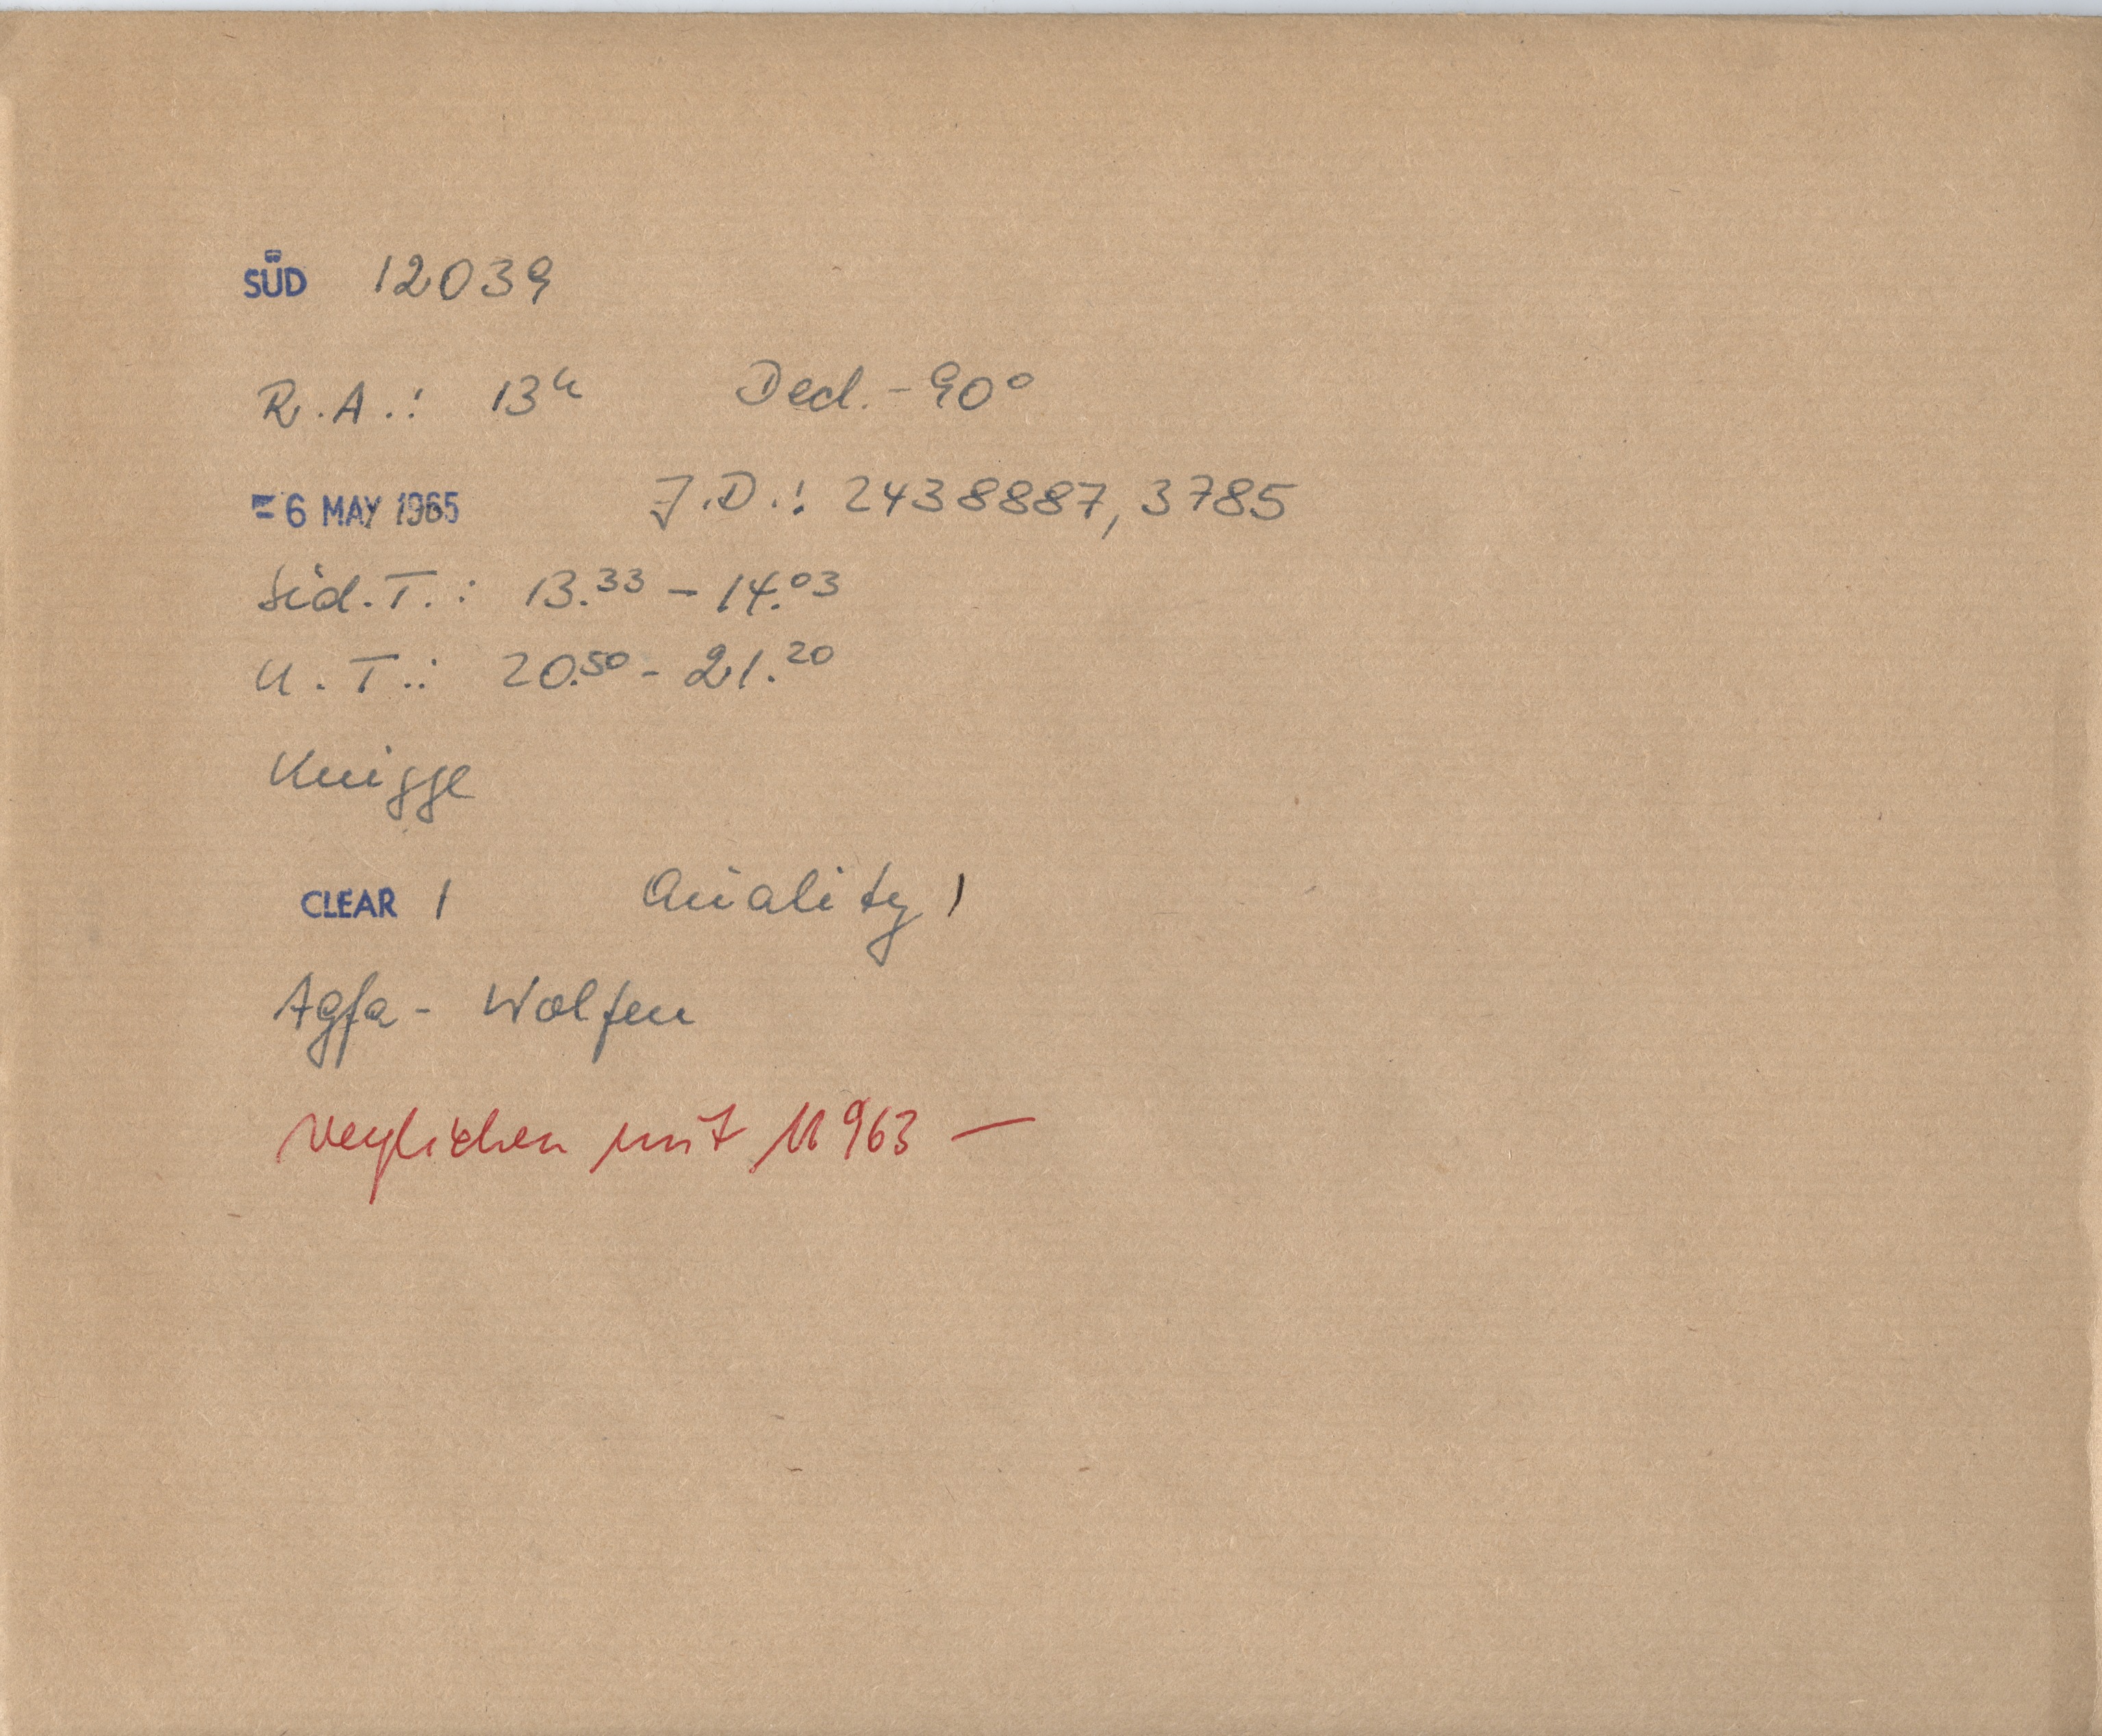 SÜD 12039
R.A.: 13h Decl. -90°
-6 MAY 1965 J.D.: 2438887,3785
Sid.T.: 13.33 - 14.03
U.T.: 20.50 - 21.20
Knigge
CLEAR 1 Quality 1
Agfa - Wolfen
verglichen mit 11963 —